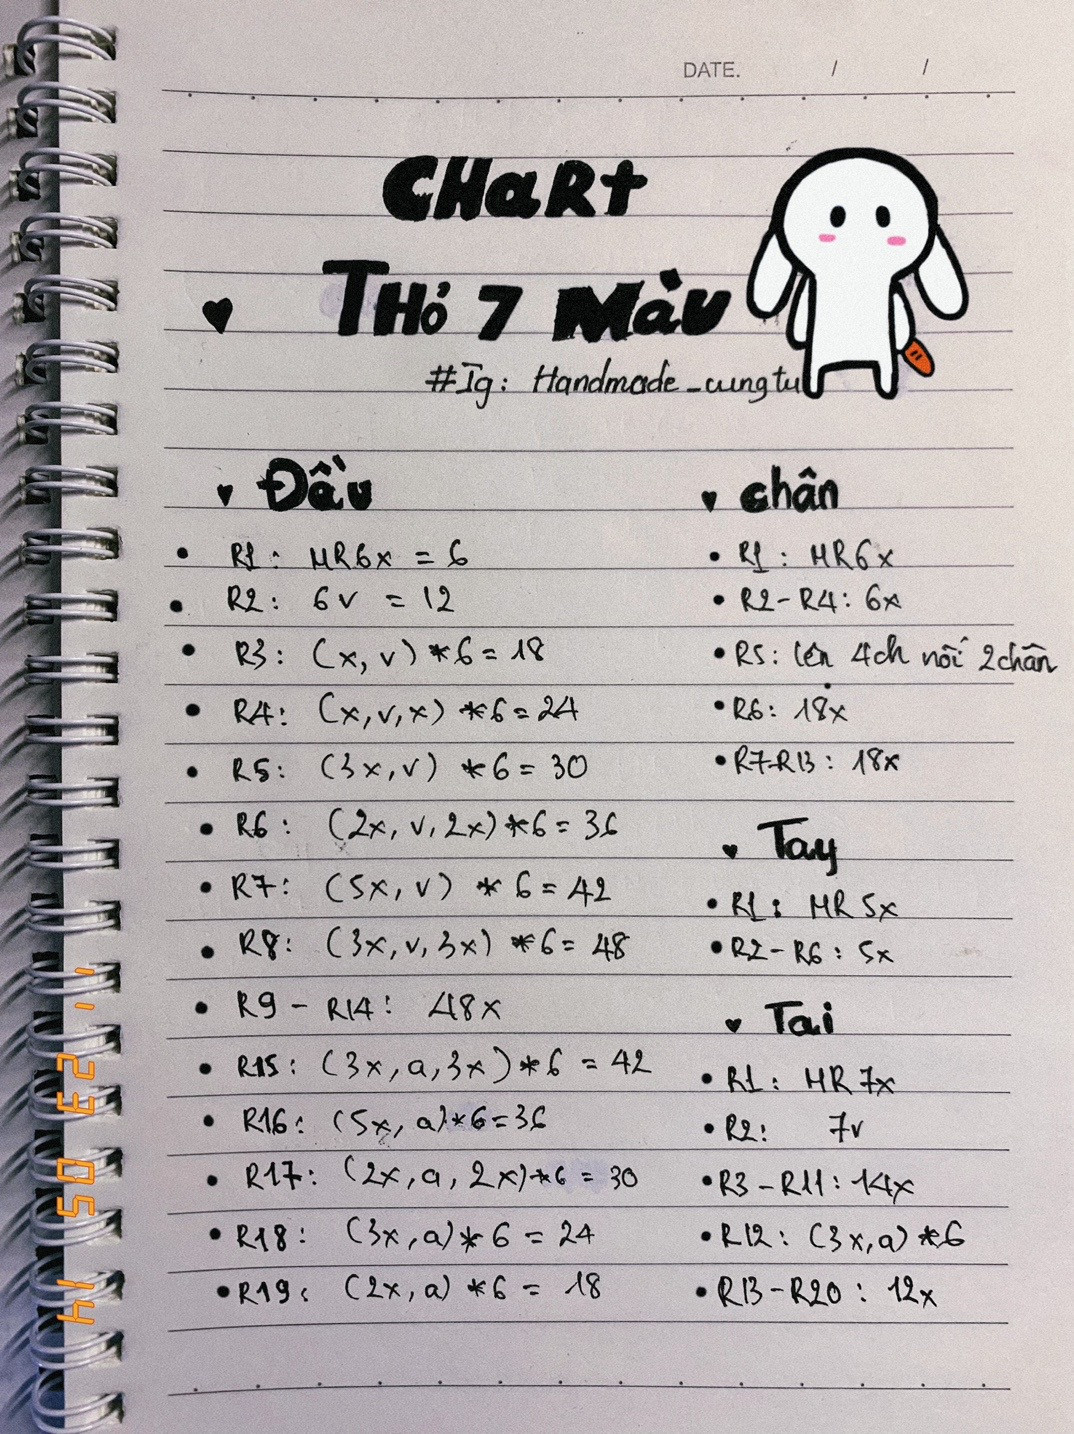 DATE. / /
CHaRt
THỏ 7 Màu
#Ig: Handmade_cungtu
Đầu
R1: MR6x = 6
R2: 6v = 12
R3: (x, v) *6 = 18
R4: (x, v, x) *6 = 24
R5: (3x, v) *6 = 30
R6: (2x, v, 2x) *6 = 36
R7: (5x, v) *6 = 42
R8: (3x, v, 3x) *6 = 48
R9 - R14: 48x
R15: (3x, a, 3x) *6 = 42
R16: (5x, a) *6 = 36
R17: (2x, a, 2x) *6 = 30
R18: (3x, a) *6 = 24
R19: (2x, a) *6 = 18
chân
R1: MR6x
R2-R4: 6x
R5: lên 4ch nối 2chân
R6: 18x
R7-R13: 18x
Tay
R1: MR 5x
R2-R6: 5x
Tai
R1: MR 7x
R2: 7v
R3-R11: 14x
R12: (3x, a) *6
R13-R20: 12x